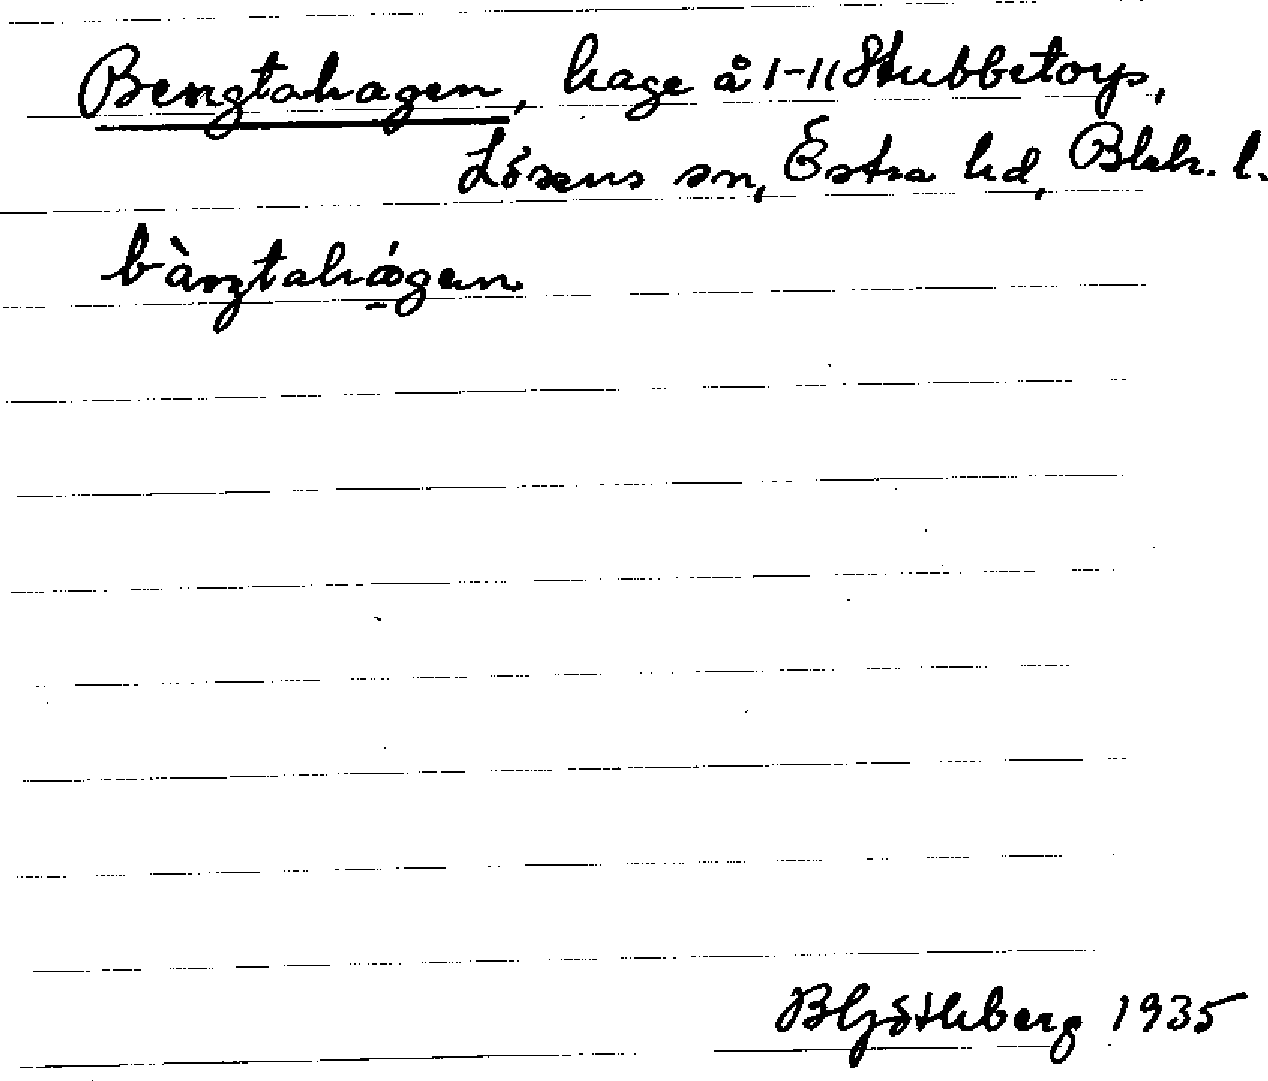 Bengtahagen, hage å 1-11 Stubbetorp,
Lösens sn, Östra hd, Blek. l.
BGöthberg 1935